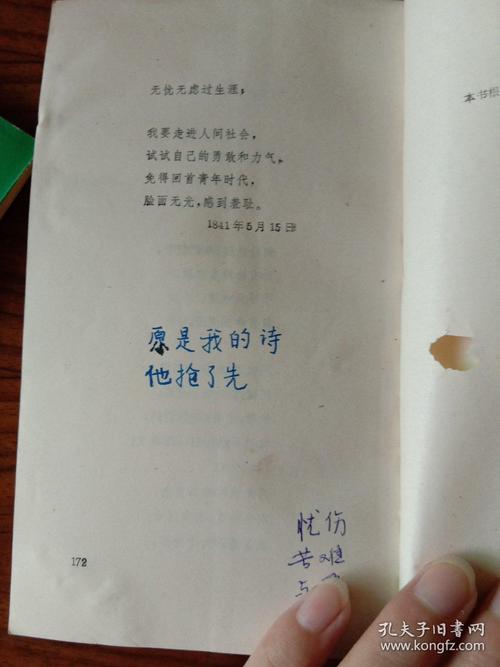 无忧无虑过生涯；
我要走进人间社会，
试试自己的勇敢和力气。
免得回首青年时代，
脸面无光，感到羞耻。
1841年5月15日
愿是我的诗
他抢了先
忧伤
苦难
与
172
本书根
孔夫子旧书网
www.kongfz.com